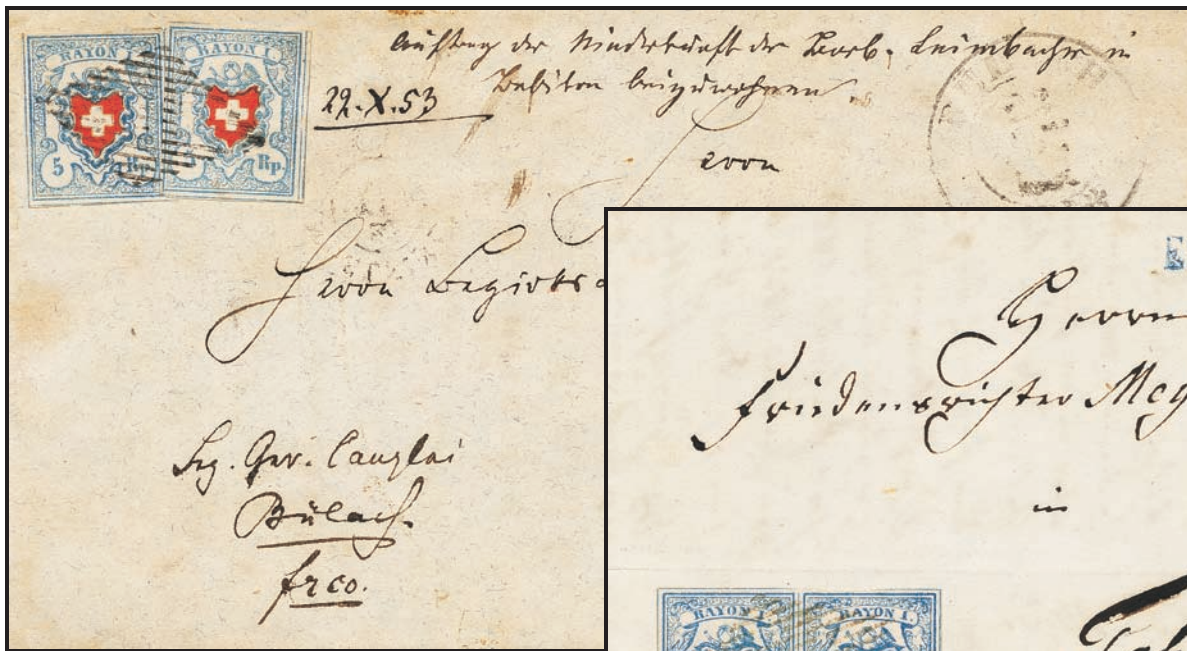 RAYON I.
RAYON I.
5 Rp.
Rp.
Auftrag der Niederkunft der Barb. Leimbacher in
beizuwohnen
22.X.53
Herrn
Herrn Bezirks
Bez. Ger. Canzlei
Bülach.
frco.
Herrn
Friedensrichter Mey
in
RAYON I.
RAYON I.